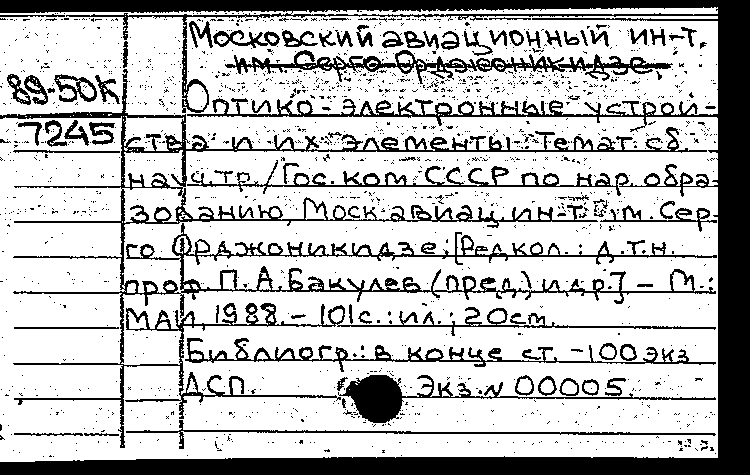 Московский авиационный ин-т.
им. Серго Орджоникидзе.
89-50К
Оптико-электронные устрой-
7245
ства и их элементы: Темат. сб.
науч. тр. / Гос. ком. СССР по нар. обра-
зованию, Моск. авиац. ин-т им. Сер-
го Орджоникидзе; [Редкол.: д.т.н.
проф. П. А. Бакулев (пред.) и др.] – М.:
МАИ, 1988. – 101с.: ил.; 20см.
Библиогр.: в конце ст. – 100 экз
ДСП. Экз. N 00005.